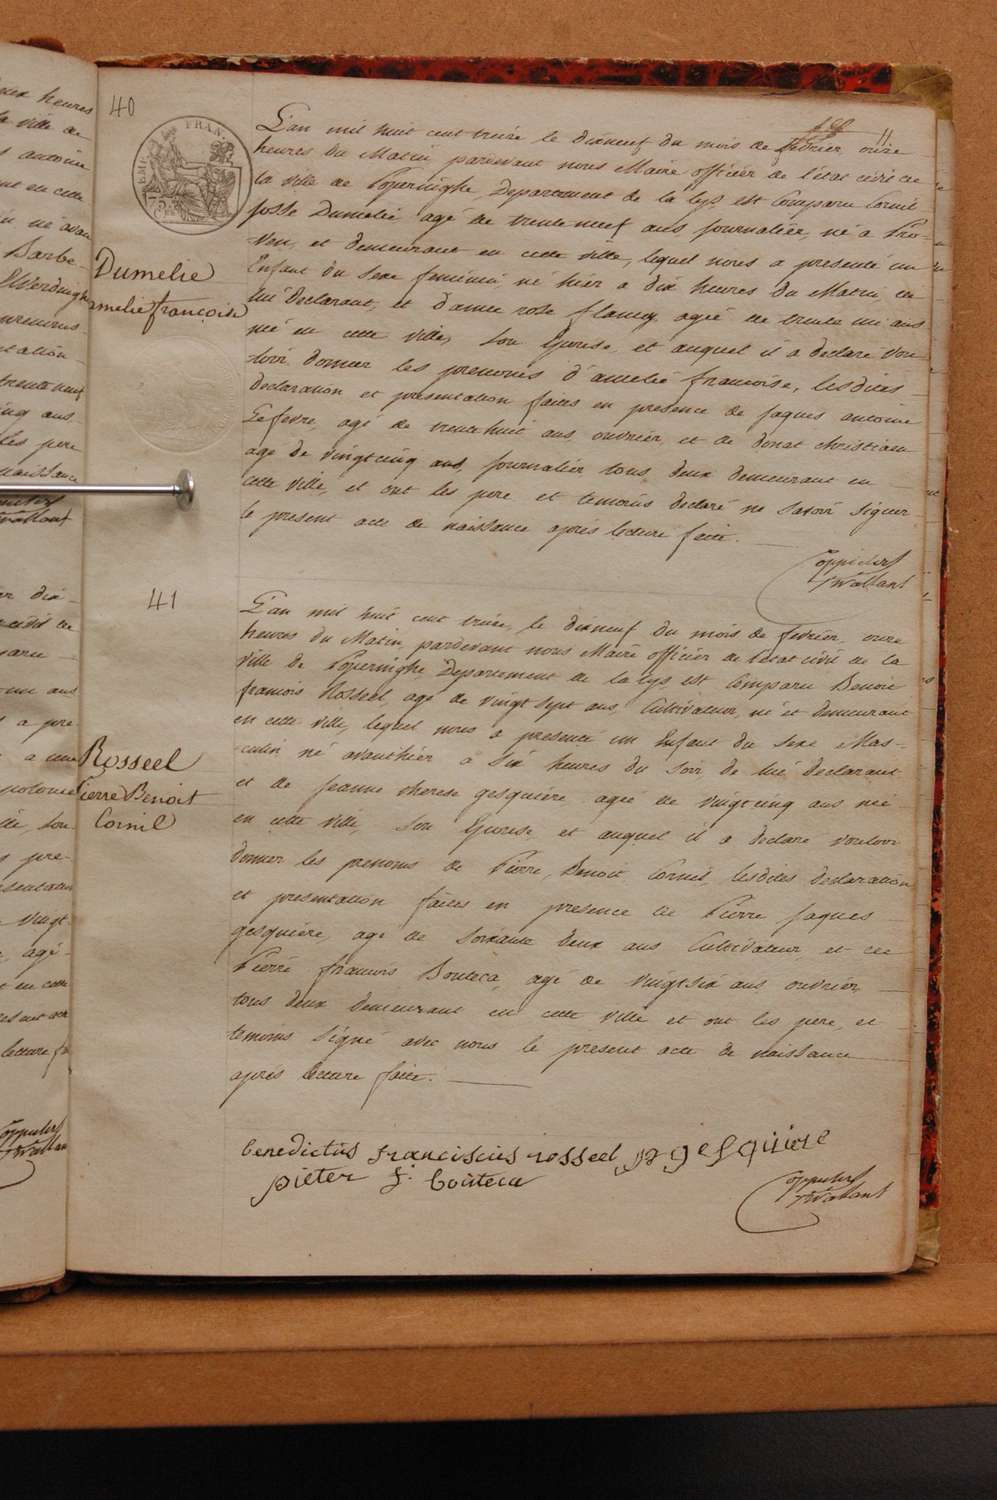 40
11
L'an mil huit cent treize le dixneuf du mois de fevrier onze
heures du Matin, pardevant nous Maire officier de l'état civil de
la ville de Poperinghe, Departement de la Lys, est Comparu Cornil
josse Dumelie agé de trente neuf ans journaliér, né à Pro-
ven, et demeurant en cette ville, lequel nous a presenté un
Enfant du sexe feminin, né hier à dix heures du Matin, de
lui declarant, et d'anne rose flamey agée de trente un ans
née en cette ville, Son Epouse, et auquel il a declaré vou-
loir donner les prenoms d'amelie francoise, lesdites
declaration et presentation faites en presence de jaques antoine
Lefevre, agé de trente huit ans ouvriér, et de donat christiaen
agé de vingtcinq ans, journaliér tous deux demeurant en
cette ville, et ont les pere et temoins declaré ne savoir signer
le present acte de naissance après lecture faite.
Dumelie
amelie françoise
41
L'an mil huit cent treize, le dixneuf du mois de fevrier onze
heures du Matin, pardevant nous Maire officier de l'etat civil de la
ville de Poperinghe Departement de la Lys, est Comparu Benoit
francois Rosseel, agé de vingt sept ans Cultivateur, né et demeurant
en cette ville, lequel nous a presenté un Enfant du sexe Mas-
culin né avanthier à six heures du soir de lui declarant
et de jeanne therese gesquiére agée de vingtcinq ans née
en cette ville, Son Epouse et auquel il a declaré vouloir
donner les prenoms de Pierre, Benoit Cornil, lesdites declaration
et presentation faites en presence de Pierre jaques
gesquiére, agé de soixante deux ans Cultivateur, et de
Pierre francois Bouteca, agé de vingtsix ans ouvriér,
tous deux demeurant en cette ville et ont les pere, et
temoins Signé avec nous le present acte de naissance
après lecture faite.
Rosseel
Pierre Benoit
Cornil
benedictus franciscus rosseel pj gesquiere
pieter f. bouteca